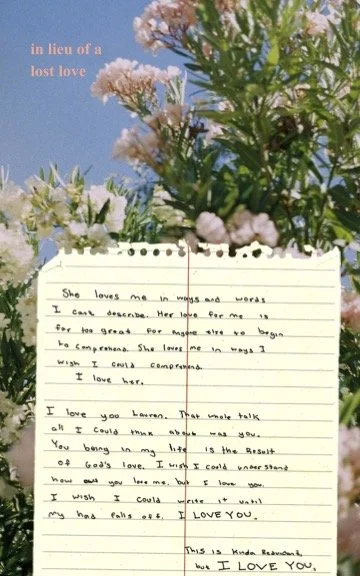 in lieu of a
lost love
She loves me in ways and words
I cant describe. Her love for me is
far too great for anyone else to begin
to comprehend. She loves me in ways I
wish I could comprehend.
I love her.
I love you Lauren. That whole talk
all I could think about was you.
You being in my life is the Result
of God's love. I wish I could understand
how you love me, but I love you.
I wish I could write it until
my had falls off. I LOVE YOU.
This is kinda Redundant,
but I LOVE YOU.